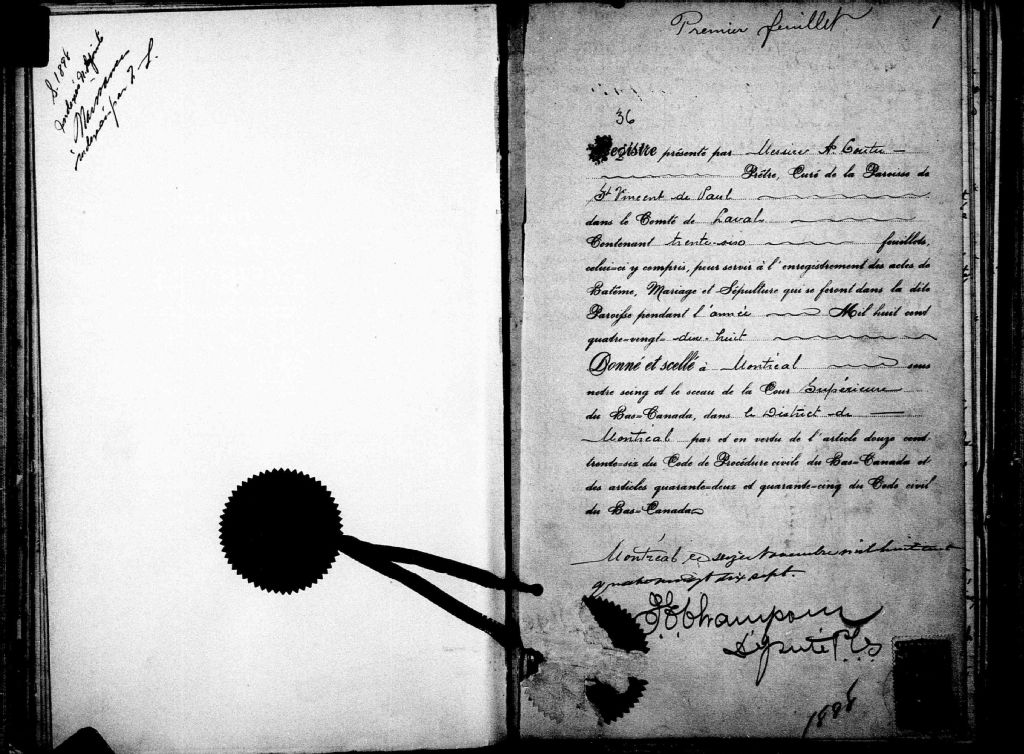 S. 1898
Naissances
indexés par
Premier feuillet
1
36
Registre présenté par Messire A. Coutu
Prêtre, Curé de la Paroisse de
St Vincent de Paul
dans le Comté de Laval
Contenant trente-six feuillets,
celui-ci y compris, pour servir à l'enregistrement des actes de
Batême, Mariage et Sépulture qui se feront dans la dite
Paroisse pendant l'année Mil huit cent
quatre-vingt-dix-huit
Donné et scellé à Montréal sous
notre seing et le sceau de la Cour Supérieure
du Bas-Canada, dans le District de
Montréal par et en vertu de l'article douze cent
trente-six du Code de Procédure civile du Bas-Canada et
des articles quarante-deux et quarante-cinq du Code civil
du Bas-Canada
Montréal le seize Novembre mil huit cent
quatrevingt dix sept.
Champoux
Député P.C.S
1898